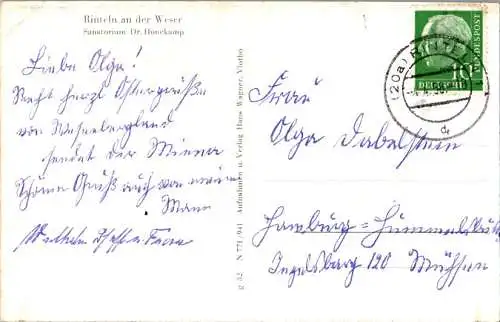 Rinteln an der Weser
Sanatorium Dr. Honekamp
Liebe Olga!
Recht herzl. Ostergrüße
vom Weserbergland
sendet Dir Minna
Schöne Grüße auch von meinem
Mann
Wilhelm
g 52 N 771/941 Aufnahmen u. Verlag Hans Wagner, Vlotho
(20a) RINTELN
DEUTSCHE BUNDESPOST
10
Frau
Olga Dabelstein
Hamburg-Hummelsbüttel
120